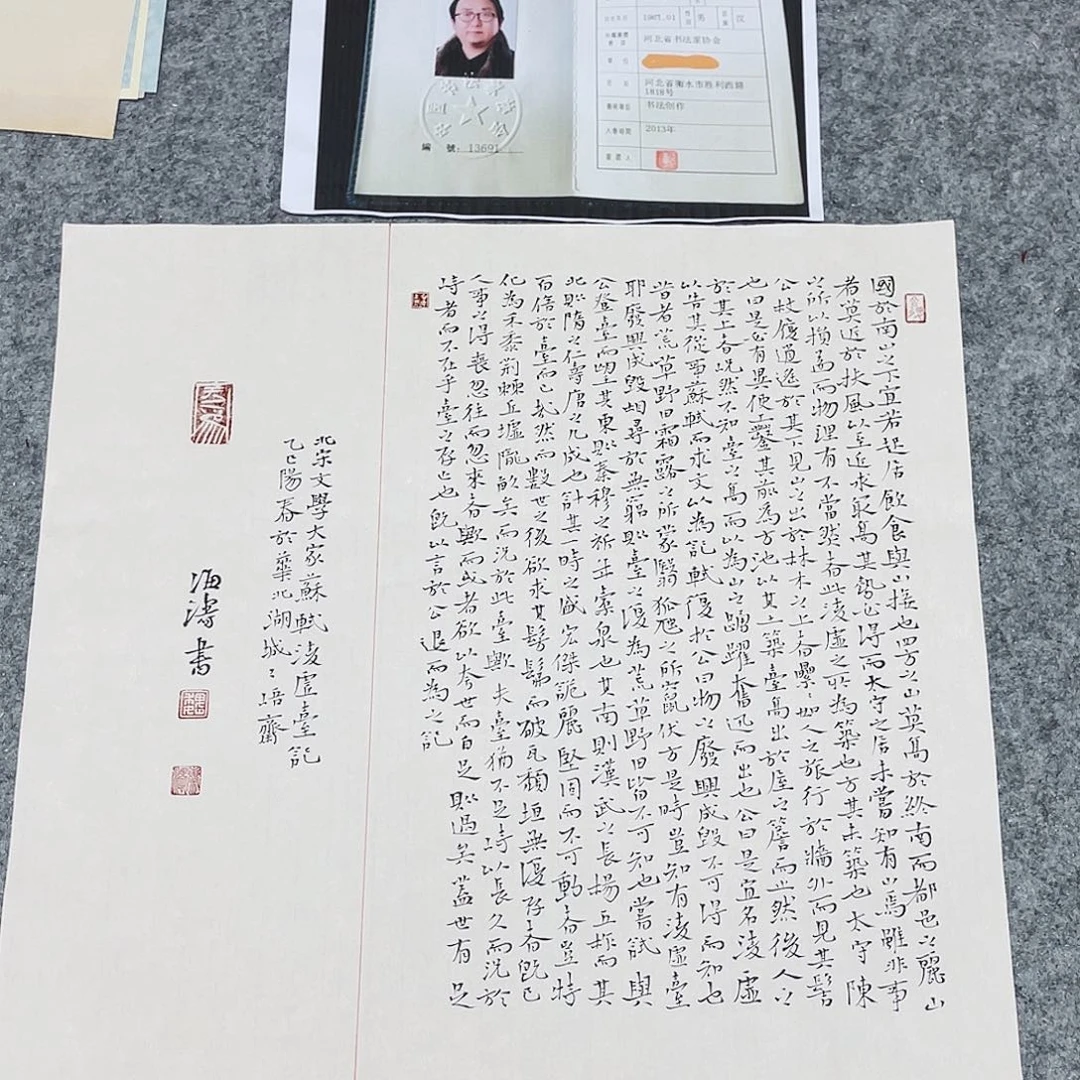 1967.01 男 汉
河北省书法家协会
河北省衡水市胜利西路
1818号
书法创作
入會時間 2013年
編 號: 13691
國於南山之下宜若起居飲食與山接也四方之山莫高於終南而都邑之麗山
者莫近於扶風以至近求最高其勢必得而太守之居未嘗知有山焉雖非事
之所以損益而物理有不當然者此凌虛之所為築也方其未築也太守陳
公杖履逍遙於其下見山之出於林木之上者纍纍如人之旅行於牆外而見其髻
也曰是必有異使工鑿其前為方池以其土築臺高出於屋之簷而止然後人之
於其上者怳然不知臺之高而以為山之踴躍奮迅而出也公曰是宜名凌虛
以告其從事蘇軾而求文以為記軾復於公曰物之廢興成毀不可得而知也
昔者荒草野田霜露之所蒙翳狐虺之所竄伏方是時豈知有凌虛臺
耶廢興成毀相尋於無窮則臺之復為荒草野田皆不可知也嘗試與
公登臺而望其東則秦穆之祈年橐泉也其南則漢武之長楊五柞而其
北則隋之仁壽唐之九成也計其一時之盛宏傑詭麗堅固而不可動者豈特
百倍於臺而已哉然而數世之後欲求其髣髴而破瓦頹垣無復存者既已
化為禾黍荊棘丘墟隴畝矣而況於此臺歟夫臺猶不足恃以長久而況於
人事之得喪忽往而忽來者歟而或者欲以夸世而自足則過矣蓋世有足
恃者而不在乎臺之存亡也既以言於公退而為之記
北宋文學大家蘇軾凌虛臺記
乙巳陽春於冀北湖城之培齋
海濤書